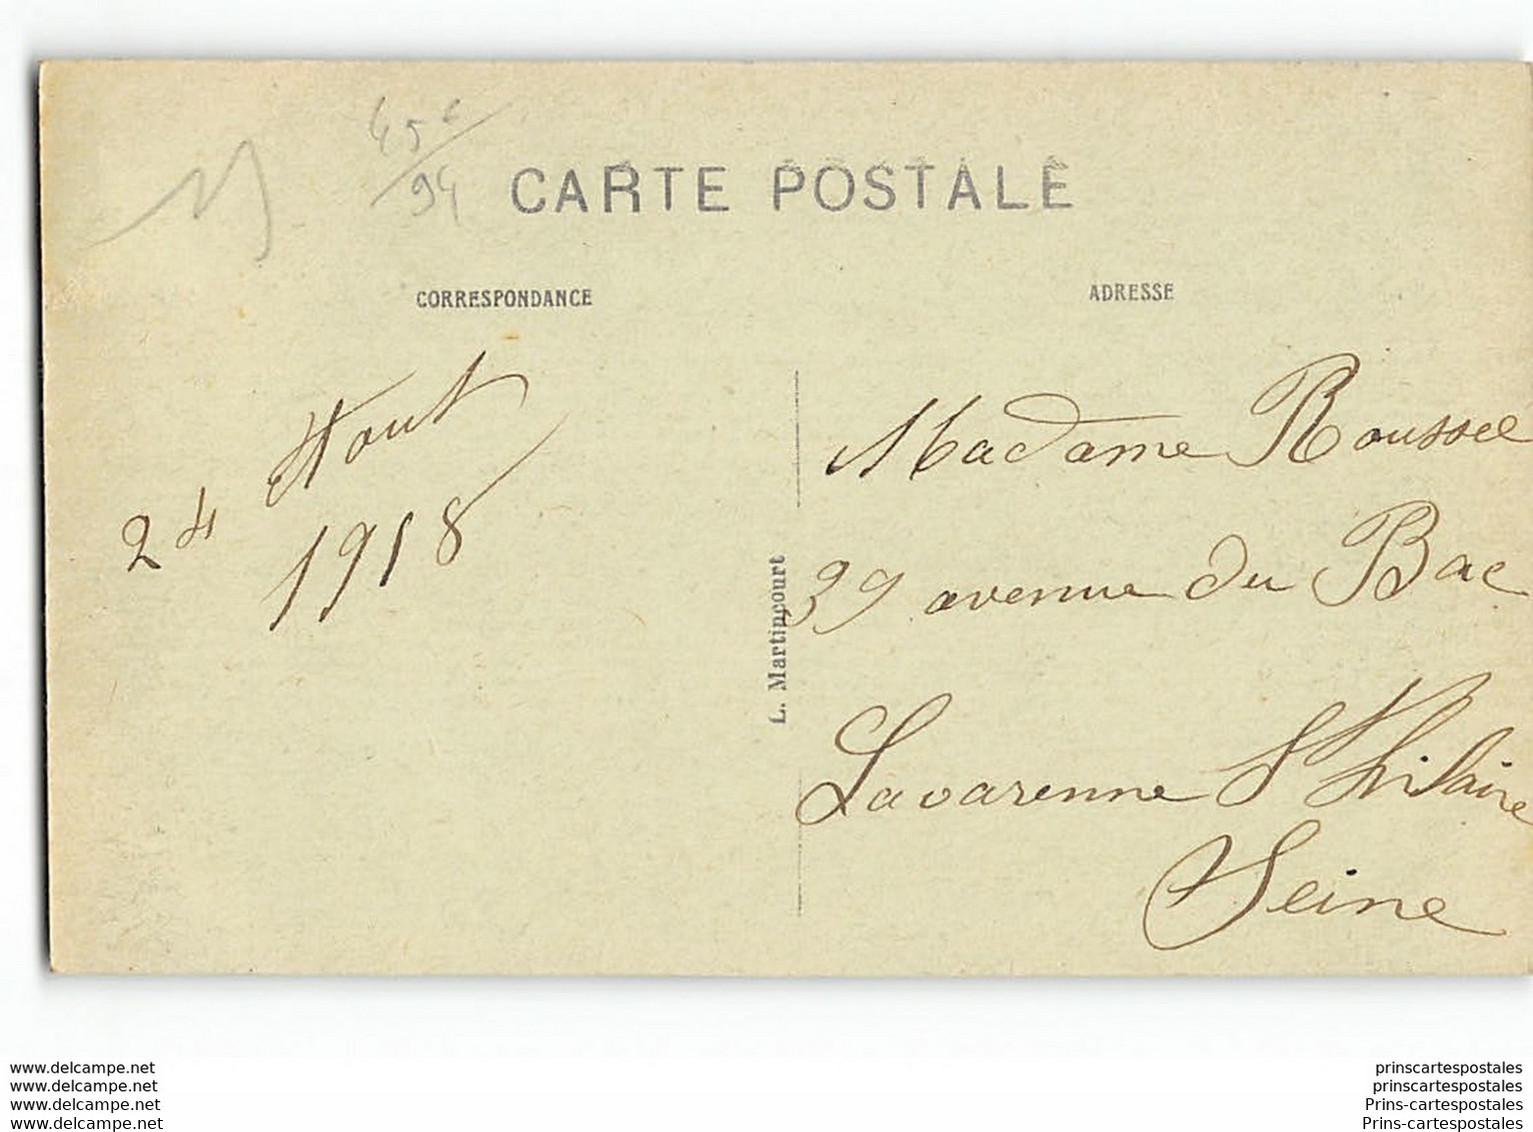 45€
94
CARTE POSTALE
CORRESPONDANCE
24 Aout
1918
L. Martincourt
ADRESSE
Madame Roussel
39 avenue du Bac
Lavarenne St Hilaire
Seine
www.delcampe.net
www.delcampe.net
www.delcampe.net
www.delcampe.net
prinscartespostales
prinscartespostales
Prins-cartespostales
Prins-cartespostales